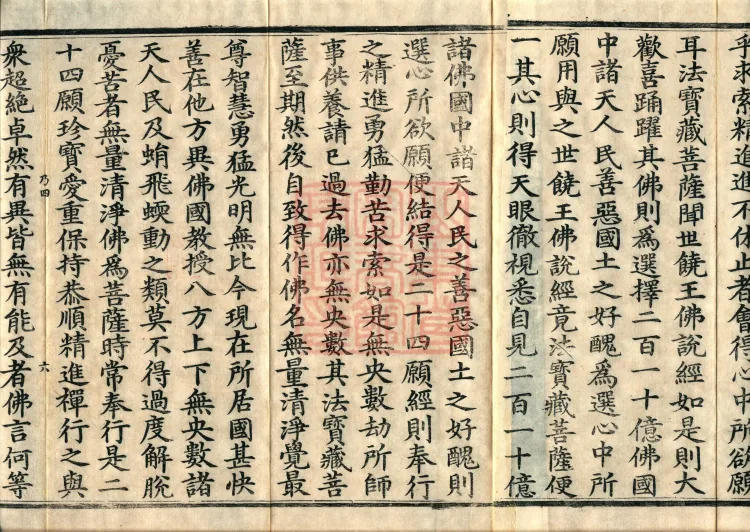 乎求索精進不休止者會得心中所欲願
耳法寶藏菩薩聞世饒王佛說經如是則大
歡喜踊躍其佛則爲選擇二百一十億佛國
中諸天人民善惡國土之好醜爲選心中所
願用與之世饒王佛說經竟法寶藏菩薩便
一其心則得天眼徹視悉自見二百一十億
諸佛國中諸天人民之善惡國土之好醜則
選心所欲願便結得是二十四願經則奉行
之精進勇猛勤苦求索如是無央數劫所師
事供養諸已過去佛亦無央數其法寶藏菩
薩至期然後自致得作佛名無量清淨覺最
尊智慧勇猛光明無比今現在所居國甚快
善在他方異佛國教授八方上下無央數諸
天人民及蜎飛蝡動之類莫不得過度解脫
憂苦者無量清淨佛爲菩薩時常奉行是二
十四願珍寶愛重保持恭順精進禪行之與
乃四
六
衆超絕卓然有異皆無有能及者佛言何等